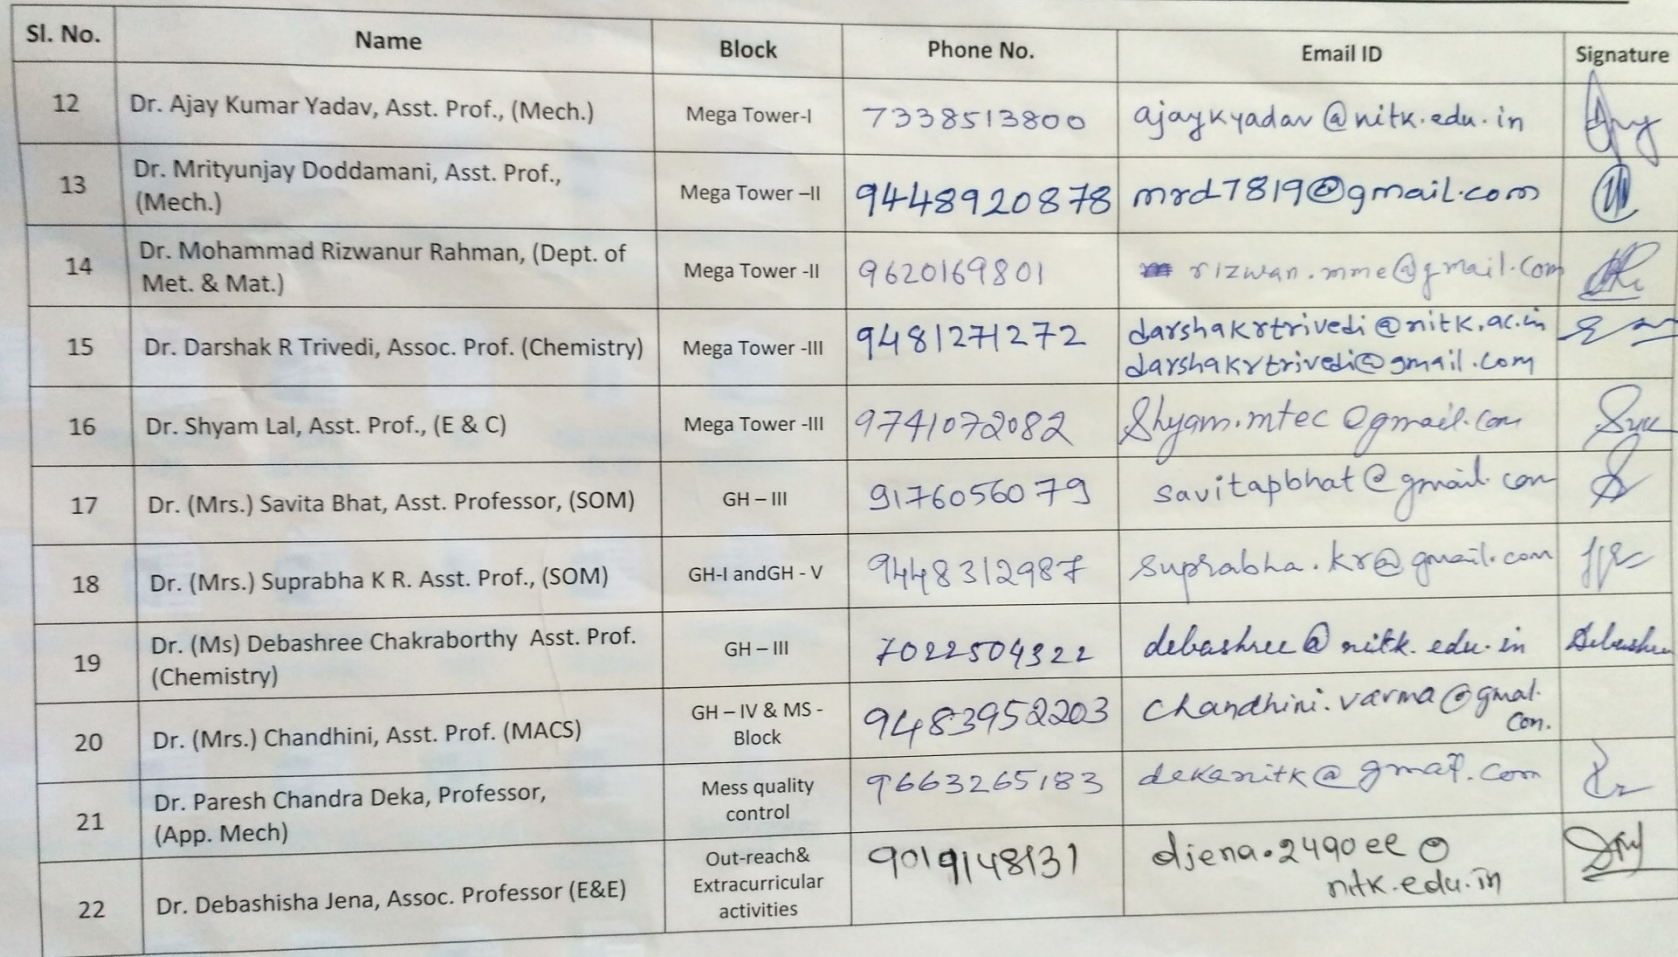 Sl. No. Name Block Phone No. Email ID Signature
12 Dr. Ajay Kumar Yadav, Asst. Prof., (Mech.) Mega Tower-I 7338513800 ajaykyadav@nitk.edu.in
13 Dr. Mrityunjay Doddamani, Asst. Prof., Mega Tower –II 9448920878 mrd7819@gmail.com
(Mech.)
14 Dr. Mohammad Rizwanur Rahman, (Dept. of Mega Tower -II 9620169801 rizwan.mme@gmail.com
Met. & Mat.)
15 Dr. Darshak R Trivedi, Assoc. Prof. (Chemistry) Mega Tower -III 9481271272 darshakrtrivedi@nitk.ac.in
darshakrtrivedi@gmail.com
16 Dr. Shyam Lal, Asst. Prof., (E & C) Mega Tower -III 9741072082 Shyam.mtec@gmail.com
17 Dr. (Mrs.) Savita Bhat, Asst. Professor, (SOM) GH – III 9176056079 savitapbhat@gmail.com
18 Dr. (Mrs.) Suprabha K R. Asst. Prof., (SOM) GH-I andGH - V 9448312987 suprabha.kr@gmail.com
19 Dr. (Ms) Debashree Chakraborthy Asst. Prof. GH – III 7022504322 debashree@nitk.edu.in Debashree
(Chemistry)
20 Dr. (Mrs.) Chandhini, Asst. Prof. (MACS) GH – IV & MS - 9483952203 Chandhini.varma@gmal.
Block con.
21 Dr. Paresh Chandra Deka, Professor, Mess quality 9663265183 dekanitk@gmail.com
(App. Mech) control
22 Dr. Debashisha Jena, Assoc. Professor (E&E) Out-reach& 9019148131 djena.2490ee@
Extracurricular nitk.edu.in
activities